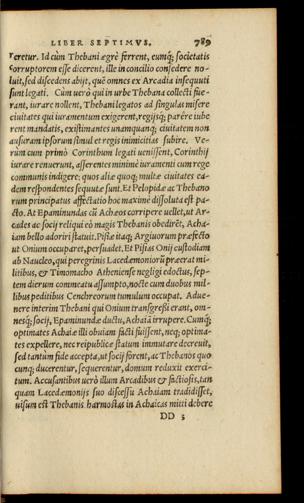 LIBER SEPTIMVS. 789
reretur. Id cùm Thebani ægrè ferrent, eumq́; societatis
corruptorem esse dicerent, ille in concilio consedere no-
luit, sed discedens abijt, què omnes ex Arcadia insequuti
sunt legati. Cùm uerò qui in urbe Thebana collecti fue-
rant, iurare nollent, Thebani legatos ad singulas misere
ciuitates qui iuramentum exigerent, regijsq́; parêre iube
rent mandatis, existimantes unamquanq; ciuitatem non
ausuram ipsorum simul et regis inimicitias subire. Ve-
rùm cum primò Corinthum legati uenissent, Corinthij
iurare renuerunt, asserentes minimè iuramenti cum rege
communis indigere: quos aliæ quoq; multæ ciuitates ea-
dem respondentes sequutæ sunt. Et Pelopidæ ac Thebano
rum principatus affectatio hoc maximè dissoluta est pa-
cto. At Epaminundas cū Achæos corripere uellet, ut Ar-
cades ac socij reliqui eò magis Thebanis obedirēt, Achaï
iam bello adoriri statuit. Pisiæ itaq; Argiuorum præfecto
ut Onium occuparet, persuadet. Et Pisias Onij custodiam
ab Naucleo, qui peregrinis Lacedæmoniorū præerat mi-
litibus, & Timomacho Atheniense negligi edoctus, sep-
tem dierum commeatu assumpto, nocte cum duobus mil-
libus peditibus Cenchreorum tumulum occupat. Adue-
nere interim Thebani qui Onium transgressi erant, om-
nesq́; socij, Epaminundæ ductu, Achaiā irrupere. Cumq́;
optimates Achaiæ illi obuiam facti fuissent, neq; optima-
tes expellere, nec reipublicæ statum immutare decreuit,
sed tantùm fide accepta, ut socij forent, ac Thebanos quo
cunq; ducerentur, sequerentur, domum reduxit exerci-
tum. Accusantibus uerò illum Arcadibus & factiosis, tan
quam Lacedæmonijs suo discessu Achaiam tradidisset,
uisum est Thebanis harmostas in Achaicas mitti debere
DD 3